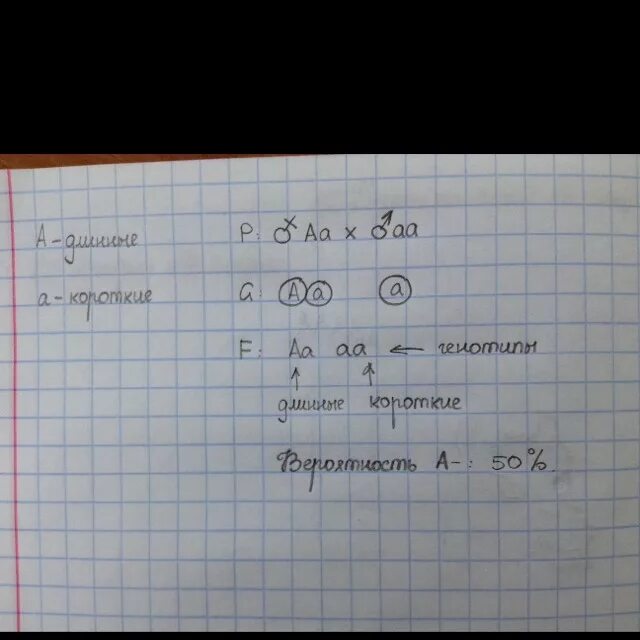 А - длинные
а - короткие
P: ♂ Aa x ♂ aa
G: A a a
F: Aa aa ← генотипы
↑ ↑
длинные короткие
Вероятность A-: 50%.